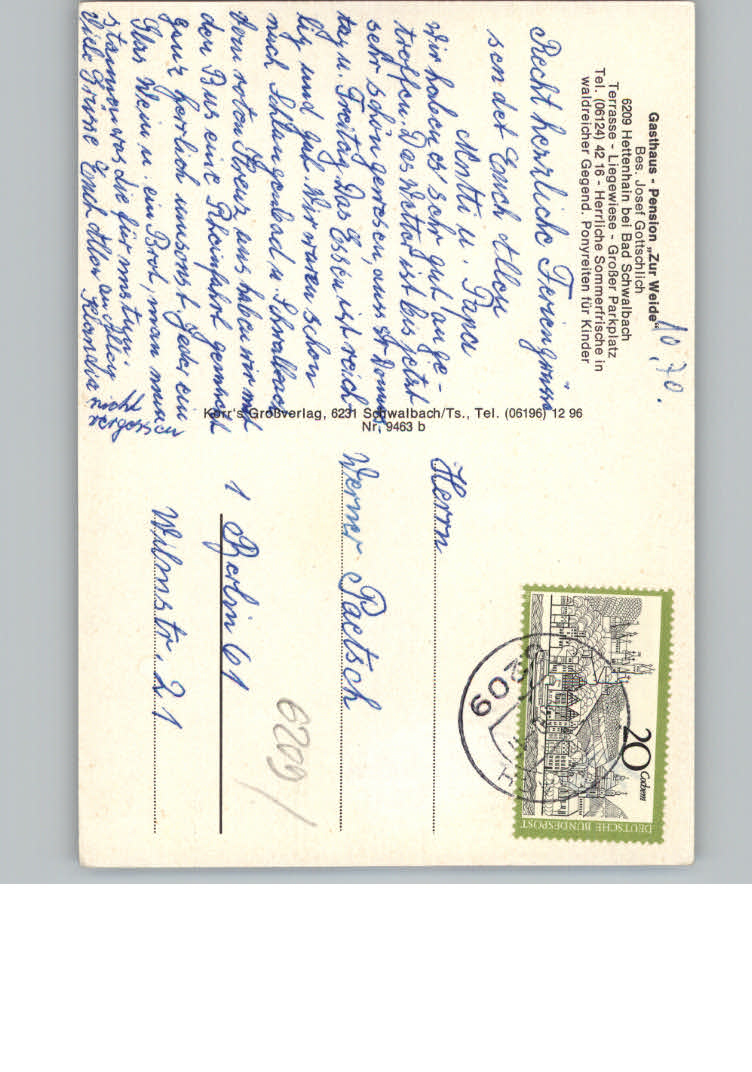 Gasthaus - Pension „Zur Weide“
Bes. Josef Gottschlich
6209 Hettenhain bei Bad Schwalbach
Terrasse - Liegewiese - Großer Parkplatz
Tel. (06124) 42 16 - Herrliche Sommerfrische in
waldreicher Gegend. Ponyreiten für Kinder
10.70.
Recht herrliche Feriengrüsse
sendet Euch Allen
Mutti u. Papa
Wir haben es sehr gut ange-
troffen. Das Wetter ist bis jetzt
sehr schön gewesen, aus Donners
tag u. Freitag. Das Essen ist reich
lig und gut. Wir waren schon
nach Schlangenbad, u. Schwalbach
Vom roten Kreuz aus haben wir mit
den Bus eine Rheinfahrt gemacht
ganz herrlich umsonst jeder ein
Glas Wein u. ein Brot, man muss
staunen was die für uns tun.
Viele Grüsse Euch Allen auch
Klaudia nicht
vergessen
Kerr's Großverlag, 6231 Schwalbach/Ts., Tel. (06196) 12 96
Nr. 9463 b
Herrn
Werner Paetsch
1 Berlin 61
Wilmstr. 21
6209
20
Cochem
DEUTSCHE BUNDESPOST
6209